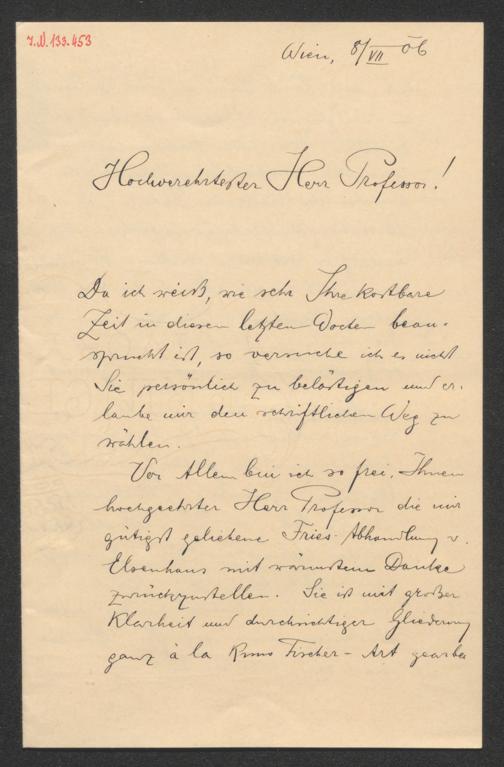 J.N. 133.453
Wien, 8/VII 06
Hochverehrtester Herr Professor!
Da ich weiß, wie sehr Ihre kostbare
Zeit in diesen letzten Wochen bean-
sprucht ist, so versuche ich es nicht
Sie persönlich zu belästigen und er-
laube mir den schriftlichen Weg zu
wählen.
Vor Allem bin ich so frei, Ihnen
hochgeehrter Herr Professor die mir
gütigst geliehene Fries-Abhandlung v.
Elsenhans mit wärmstem Danke
zurückzustellen. Sie ist mit großer
Klarheit und durchsichtiger Gliederung
ganz à la Kuno Fischer-Art gearbei